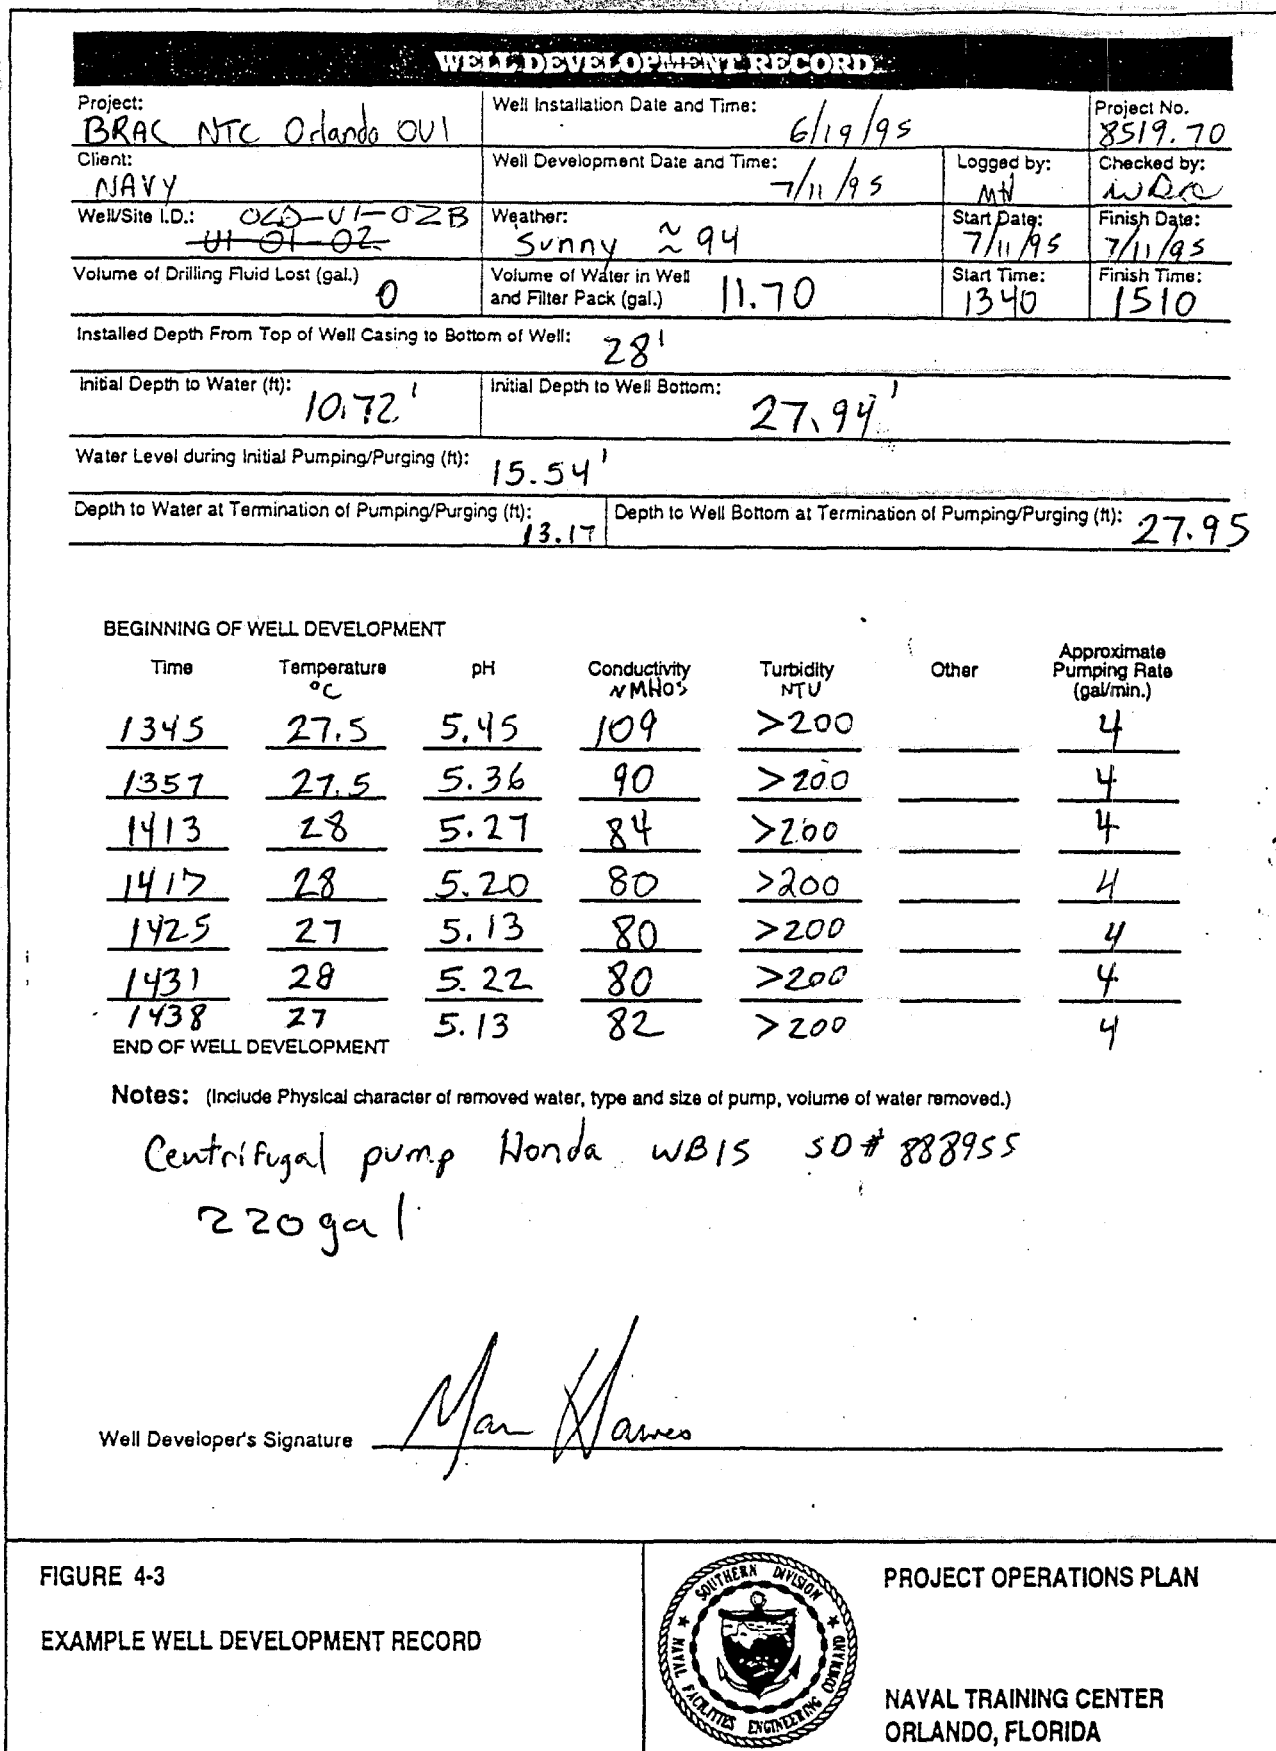 WELL DEVELOPMENT RECORD
Project: BRAC NTC Orlando OU1
Well Installation Date and Time: 6/19/95
Project No. 8519.70
Client: NAVY
Well Development Date and Time: 7/11/95
Logged by: MH
Checked by:
Well/Site I.D.: OLD-U1-02B
U1-01-02
Weather: Sunny ≈ 94
Start Date: 7/11/95
Finish Date: 7/11/95
Volume of Drilling Fluid Lost (gal.) 0
Volume of Water in Well and Filter Pack (gal.) 11.70
Start Time: 1340
Finish Time: 1510
Installed Depth From Top of Well Casing to Bottom of Well: 28'
Initial Depth to Water (ft): 10.72'
Initial Depth to Well Bottom: 27.94'
Water Level during Initial Pumping/Purging (ft): 15.54'
Depth to Water at Termination of Pumping/Purging (ft): 13.17
Depth to Well Bottom at Termination of Pumping/Purging (ft): 27.95
BEGINNING OF WELL DEVELOPMENT
Time Temperature °C pH Conductivity NMHOS Turbidity NTU Other Approximate Pumping Rate (gal/min.)
1345 27.5 5.45 109 >200 4
1357 27.5 5.36 90 >200 4
1413 28 5.27 84 >200 4
1417 28 5.20 80 >200 4
1425 27 5.13 80 >200 4
1431 28 5.22 80 >200 4
1438 27 5.13 82 >200 4
END OF WELL DEVELOPMENT
Notes: (Include Physical character of removed water, type and size of pump, volume of water removed.)
Centrifugal pump Honda WB15 SD# 888955
220 gal
Well Developer's Signature
FIGURE 4-3
EXAMPLE WELL DEVELOPMENT RECORD
SOUTHERN DIVISION
NAVAL FACILITIES ENGINEERING COMMAND
PROJECT OPERATIONS PLAN
NAVAL TRAINING CENTER
ORLANDO, FLORIDA